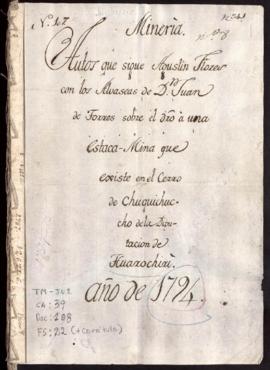 N. 17
Mineria.
Autos que sigue Agustin Flores
con los Alvaseas de Dn Juan
de Torres sobre el dro à una
Estaca-Mina que
existe en el Cerro
de Chuquichuc-
cho de la Dipu-
tacion de
Huarochirì.
año de 1794.
TM-JU2
CA: 39
Doc: 108
FS: 22 (+ carátula)